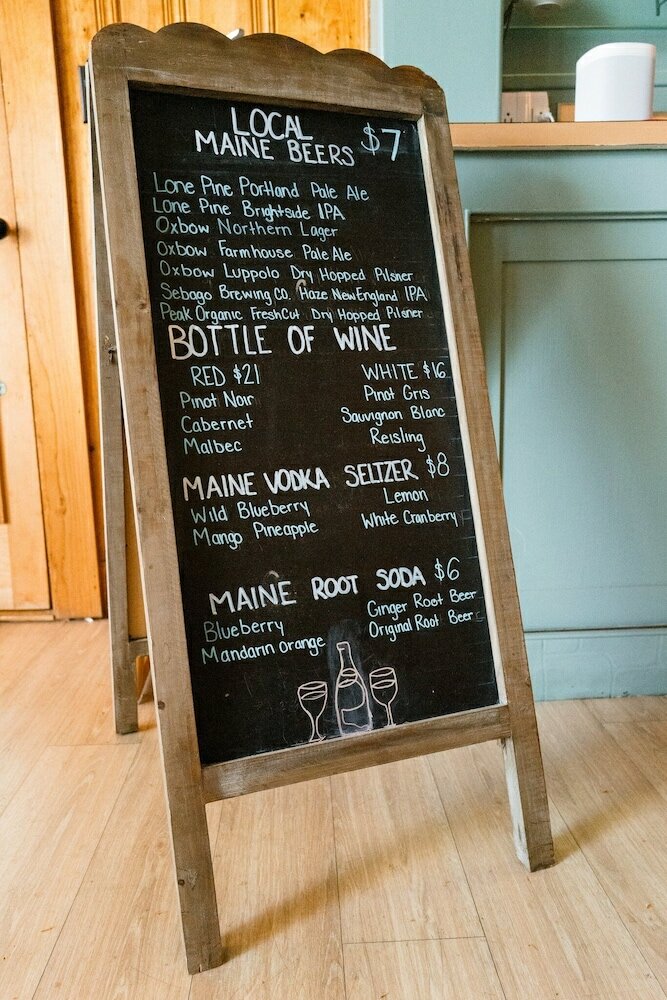 LOCAL
MAINE BEERS $7
Lone Pine Portland Pale Ale
Lone Pine Brightside IPA
Oxbow Northern Lager
Oxbow Farmhouse Pale Ale
Oxbow Luppolo Dry Hopped Pilsner
Sebago Brewing Co. Haze New England IPA
Peak Organic Fresh Cut Dry Hopped Pilsner
BOTTLE OF WINE
RED $21
Pinot Noir
Cabernet
Malbec
WHITE $16
Pinot Gris
Sauvignon Blanc
Reisling
MAINE VODKA SELTZER $8
Wild Blueberry
Mango Pineapple
Lemon
White Cranberry
MAINE ROOT SODA $6
Blueberry
Mandarin Orange
Ginger Root Beer
Original Root Beer